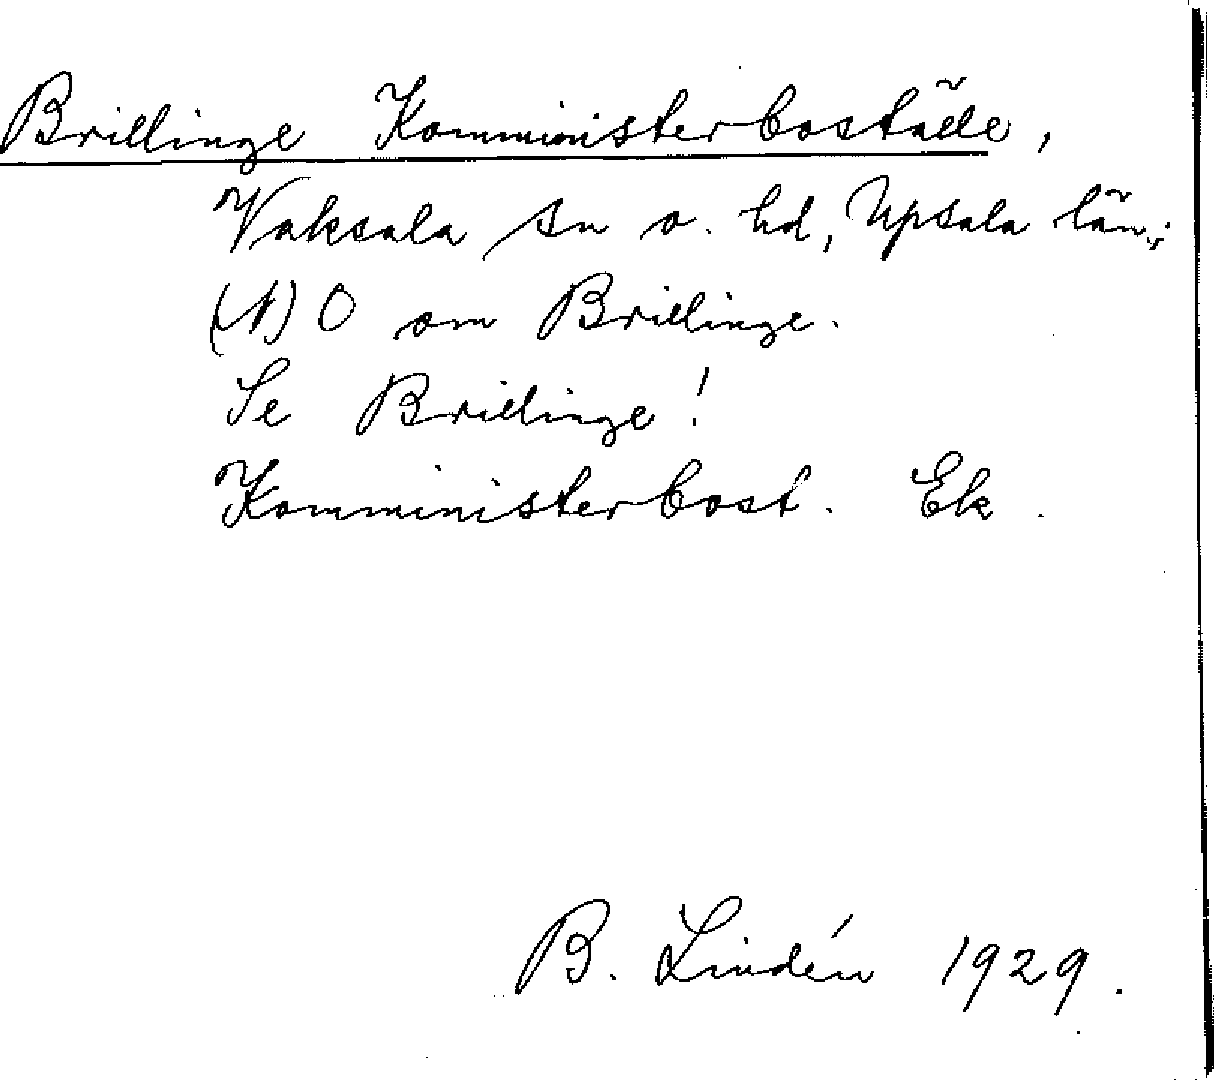 Brillinge Komministerboställe,
Vaksala sn o. hd, Upsala län.;
(N) O om Brillinge.
Se Brillinge!
Komministerbost. Ek.
B. Lindén 1929.